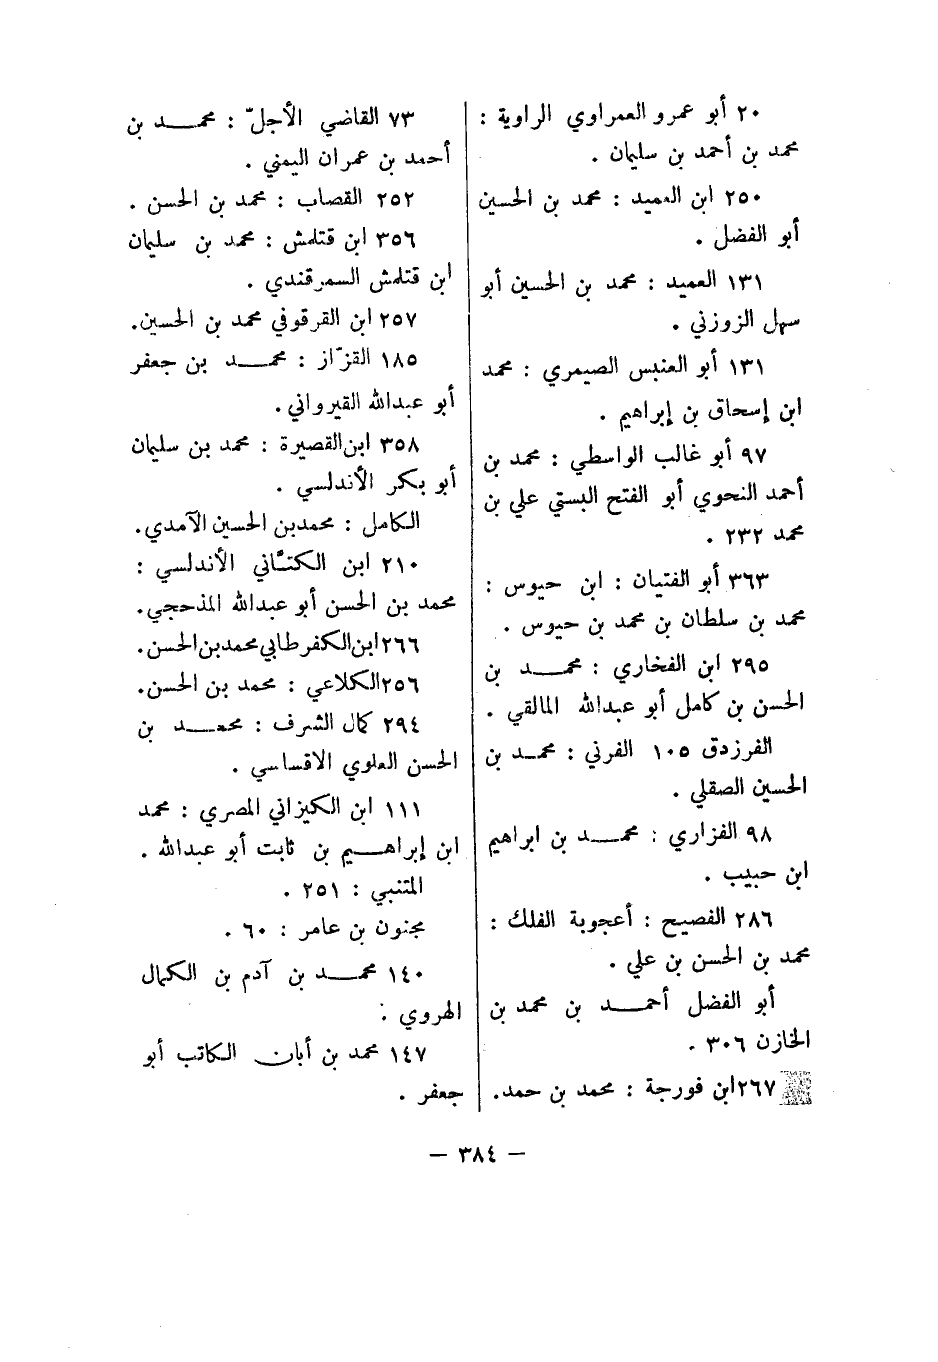 ٢٠ أبو عمرو العمراوي الراوية :
محمد بن أحمد بن سليمان .
٢٥٠ ابن العميد : محمد بن الحسين
أبو الفضل .
١٣١ العميد : محمد بن الحسين أبو
سهل الزوزني .
١٣١ أبو العنبس الصيمري : محمد
ابن إسحاق بن إبراهيم .
٩٧ أبو غالب الواسطي : محمد بن
أحمد النحوي أبو الفتح البستي علي بن
محمد ٢٣٢ .
٣٦٣ أبو الفتيان : ابن حيوس :
محمد بن سلطان بن محمد بن حيوس .
٢٩٥ ابن الفخاري : محمد بن
الحسن بن كامل أبو عبدالله المالقي .
الفرزدق ١٠٥ الفرني : محمد بن
الحسين الصقلي .
٩٨ الفزاري : محمد بن ابراهيم
ابن حبيب .
٢٨٦ الفصيح : أعجوبة الفلك :
محمد بن الحسن بن علي .
أبو الفضل أحمد بن محمد بن
الخازن ٣٠٦ .
٢٦٧ ابن فورجة : محمد بن حمد.
٧٣ القاضي الأجلّ : محمد بن
أحمد بن عمران اليمني .
٢٥٢ القصاب : محمد بن الحسن .
٣٥٦ ابن قتلمش : محمد بن سليمان
ابن قتلمش السمرقندي .
٢٥٧ ابن القرقوفي محمد بن الحسين.
١٨٥ القزّاز : محمد بن جعفر
أبو عبدالله القيرواني.
٣٥٨ ابن القصيرة : محمد بن سليمان
أبو بكر الأندلسي .
الكامل : محمد بن الحسين الآمدي.
٢١٠ ابن الكتّاني الأندلسي :
محمد بن الحسن أبو عبدالله المذحجي.
٢٦٦ ابن الكفرطابي محمد بن الحسن.
٢٥٦ الكلاعي : محمد بن الحسن.
٢٩٤ كمال الشرف : محمد بن
الحسن العلوي الاقساسي .
١١١ ابن الكيزاني المصري : محمد
ابن إبراهيم بن ثابت أبو عبدالله .
المتنبي : ٢٥١ .
مجنون بن عامر : ٦٠ .
١٤٠ محمد بن آدم بن الكمال
الهروي :
١٤٧ محمد بن أبان الكاتب أبو
جعفر .
— ٣٨٤ —